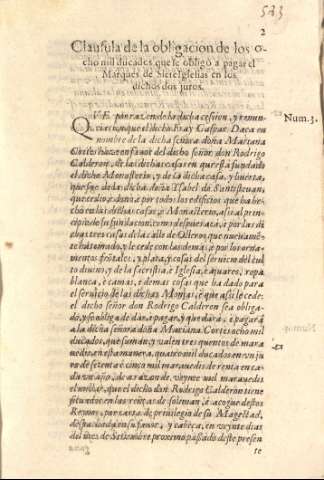 523
2
Clausula de la obligacion de los o-
cho mil ducados que se obligò a pagar el
Marques de Sieteiglesias en los
dichos dos juros.
Num.3.
QVE por razon de la dicha cession, y renun-
ciacion que el dicho Fray Gaspar Daca en
nombre de la dicha señora doña Mariana
Cortes haze en fauor del dicho señor don Rodrigo
Calderon, de las dichas casas en que està fundado
el dicho Monasterio, y de la dicha casa, y huerta,
que fue de la dicha doña Isabel de Santisteuan,
por todos los edificios que ha he-
cho en las dichas casas, è Monasterio, assi al prin-
cipio de su fundacion, como despues acà, è por las di-
chas tres casas de la calle de Olleros que nueuamẽ-
te ha tomado, y le cede con las demàs, è por los orna-
mentos frõtales, y plata, y cosas del seruicio del cul-
to diuino, y de la sacristia, è Iglesia, è axuares, ropa
blanca, è camas, è demas cosas que ha dado para
el seruicio de las dichas Monjas, è que assi le cede:
el dicho señor don Rodrigo Calderon sea obliga-
do, y se obliga de dar, è pagar, y que darà, è pagarà
a la dicha señora doña Mariana Cortès ocho mil
ducados, que suman, y valen tres quentos de mara-
uedis, en esta manera, quatro mil ducados en vn ju-
ro de setenta è cinco mil marauedis de renta en ca-
da vn año, de a razon de veynte mil marauedis
el millar, que el dicho don Rodrigo Calderon tiene
situados en las rentas de
Reynos, por carta de priuilegio de su Magestad,
despachada en su fauor, y cabeça, en veynte dias
del mes de Setiembre proximo passado deste presen
te